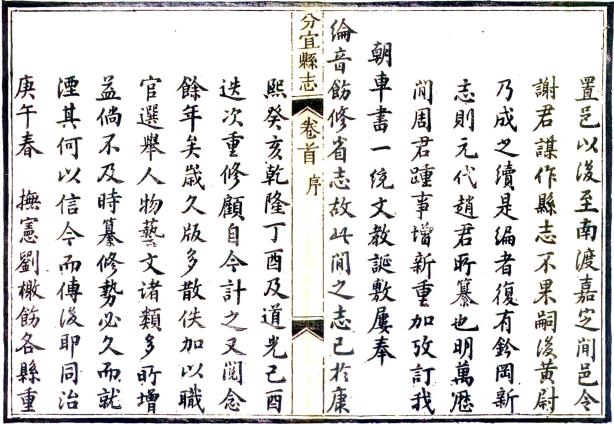 置邑以後至南渡嘉定間邑令
謝君謀作縣志不果嗣後黃尉
乃成之續是編者復有鈐岡新
志則元代趙君所纂也明萬曆
間周君踵事增新重加攷訂我
朝車書一統文教誕敷屢奉
綸音飭修省志故此間之志已於康
分宜縣志
卷首
序
熙癸亥乾隆丁酉及道光己酉
迭次重修顧自今計之又閱念
餘年矣歲久版多散佚加以職
官選舉人物藝文诸類多所增
益倘不及時纂修勢必久而就
湮其何以信今而傳後耶同治
庚午春 撫憲劉檄飭各縣重